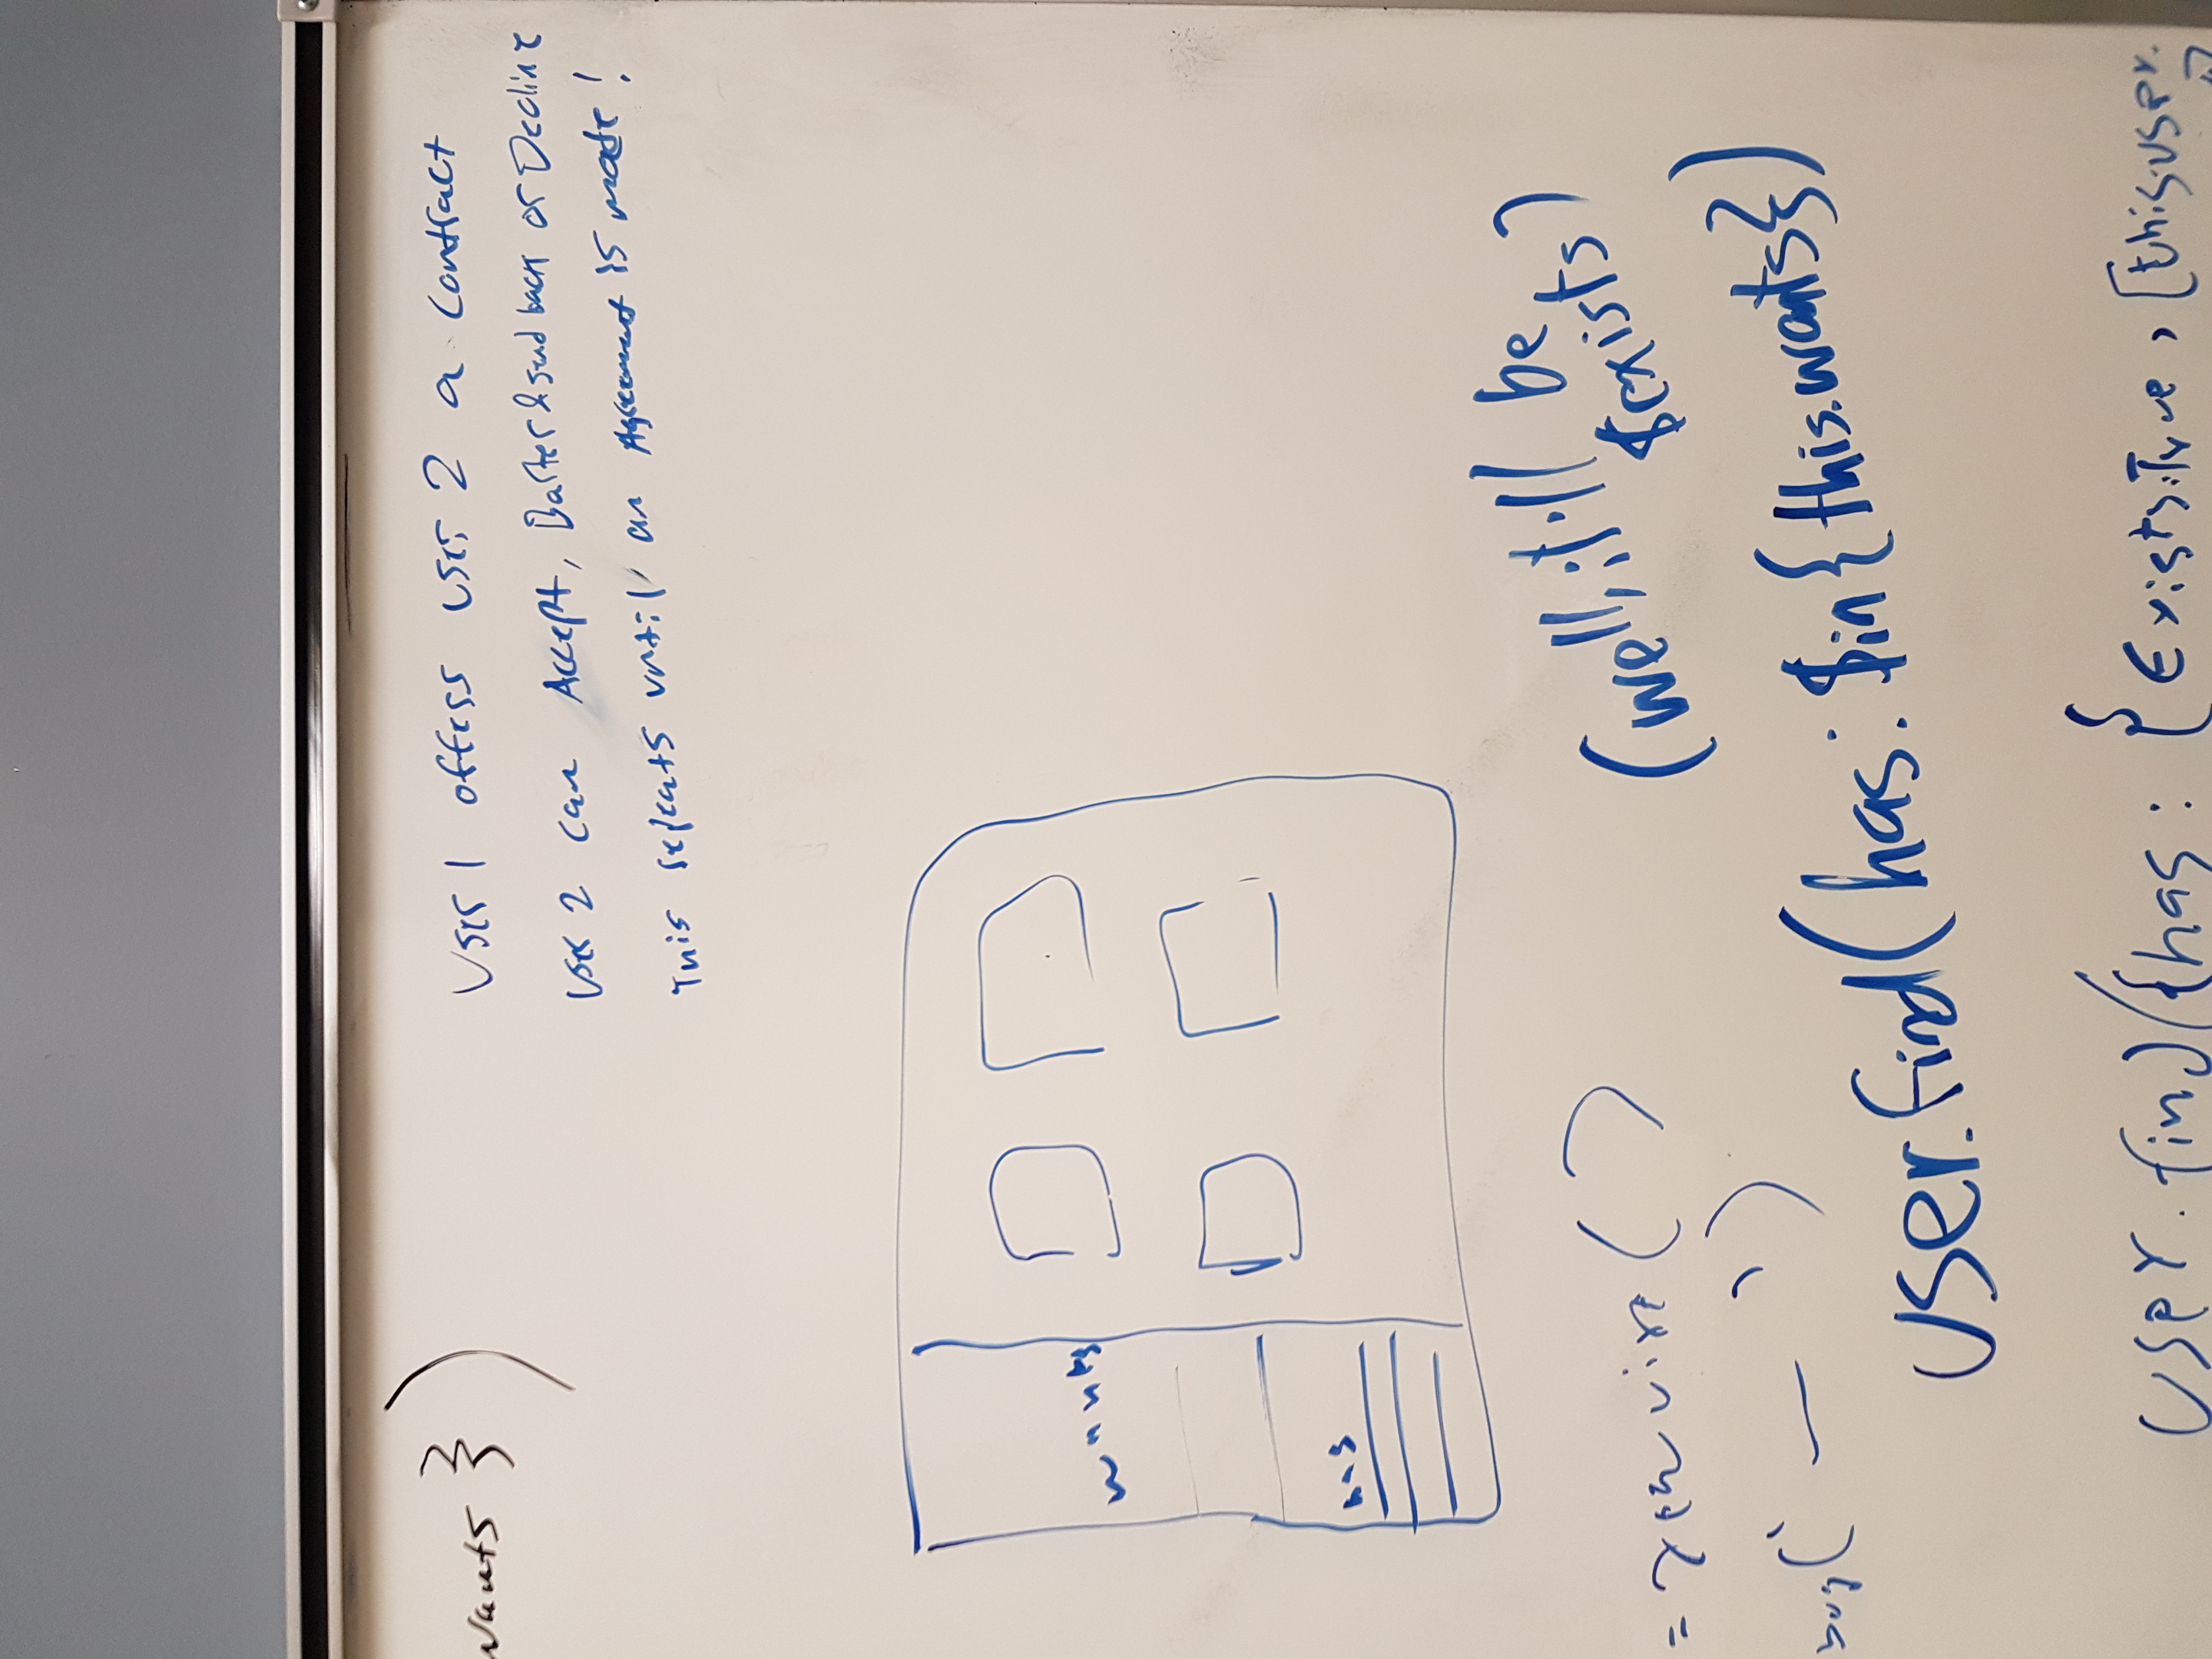 wants })
User 1 offers user 2 a contract
User 2 can Accept, Barter & send back or Decline
This repeats until an Agreement is made!
wants
has
= require( )
(well, it'll be
$exists)
bug(' — ')
User.find(has: $in{this.wants})
User.find({has: {Exists:True, [this.user.